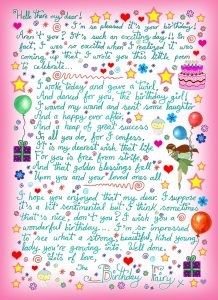 Hello there my dear!
I'm so pleased it's your birthday!
Aren't you? It's such an exciting day! In
fact, I was so excited when I realized it was
coming up that I wrote you this little poem
to celebrate...
I woke today and gave a twirl,
And danced for you, the birthday girl!
I waved my wand and sent some laughter
And a happy ever after,
And a heap of great success
In all you do, for I confess,
It is my dearest wish that life
For you is free from strife,
And that golden blessings fall
Upon you and your loved ones all.
I hope you enjoyed that my dear. I suppose
it's a bit sentimental but I think sometimes
that's nice, don't you? I wish you a
wonderful birthday.... I'm so impressed
to see what a strong, beautiful, kind young
lady you're growing into. Well done!
Lots of love,
The Birthday Fairy
x